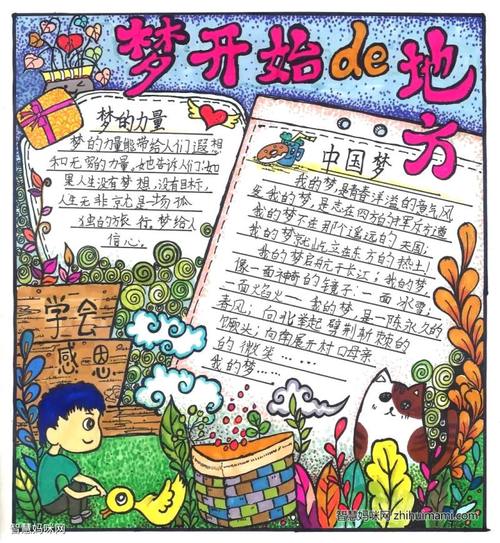 梦开始de地方
梦的力量
梦的力量能带给人们遐想
和无穷的力量。她告诉人们：如
果人生没有梦想，没有目标，
人生无非就是一场孤
独的旅行。梦给人
信心。
中国梦
我的梦，是青春洋溢的勇气风
我的梦不在那个遥远的天国；
我的梦就屹立在东方的热土！
我的梦启航于长江；我的梦
像一面神奇的镜子：一面冰雪；
一面火焰——我的梦，是一阵永久的
春风；向北举起
的微笑……
我的梦……
学会
感恩
智慧妈咪网
智慧妈咪网 zhihuimami.com